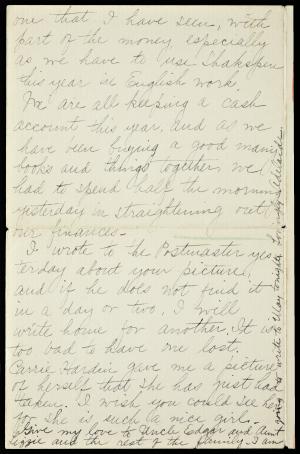 one that I have seen, with
part of the money, especially
as we have to use Shakspere
this year in English work.
We are all keeping a cash
account this year, and as we
have been buying a good many
books and things together, we
had to spend half the morning
yesterday in straightening out
our finances.
I wrote to the Postmaster yes-
terday about your picture,
and if he does not find it
in a day or two, I will
write home for another. It is
too bad to have one lost.
Carrie Hardin gave me a picture
of herself that she has just had
taken. I wish you could see her
for she is such a nice girl.
Give my love to Uncle Edgar and Aunt
Lizzie and the rest of the family. I am
going to write to May tonight. Lovingly Adelaide